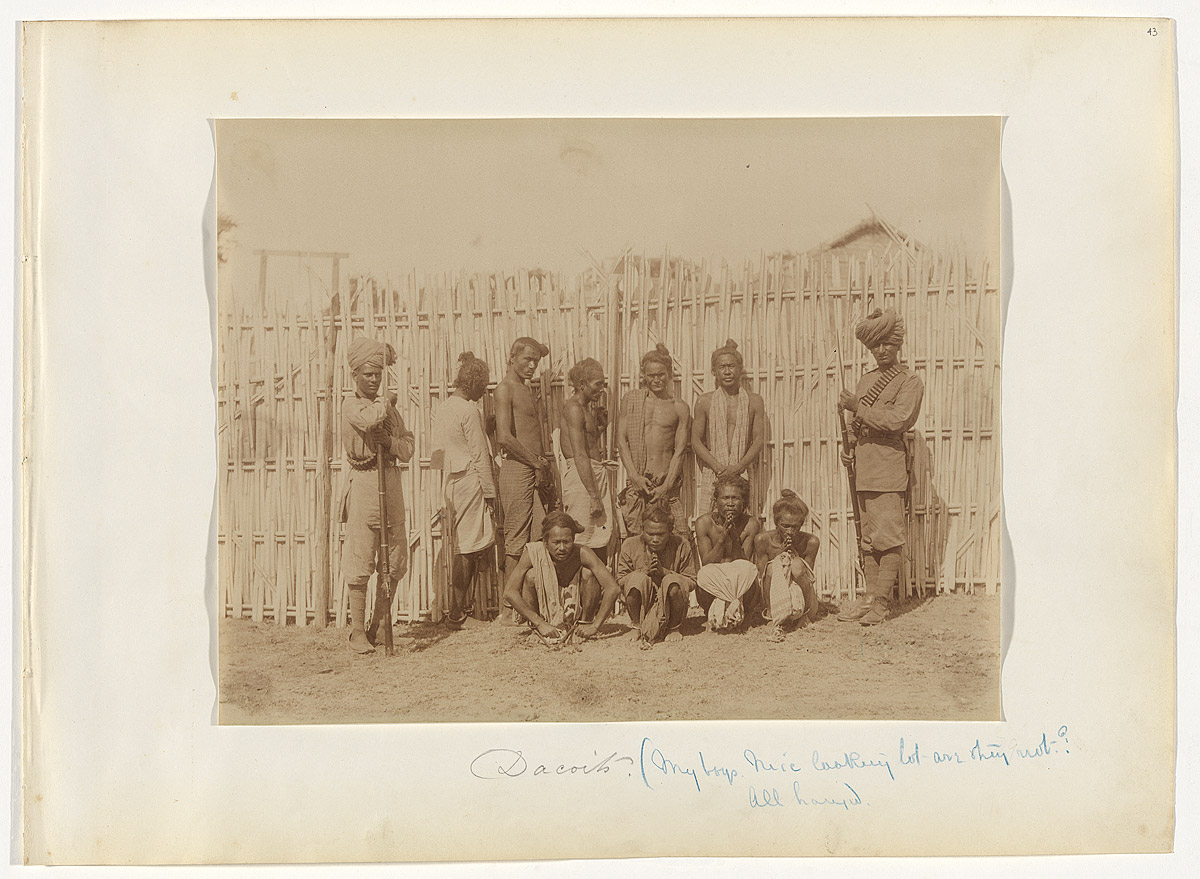 43
Dacoits. (My boys. Nice looking lot are they not?
All hanged.